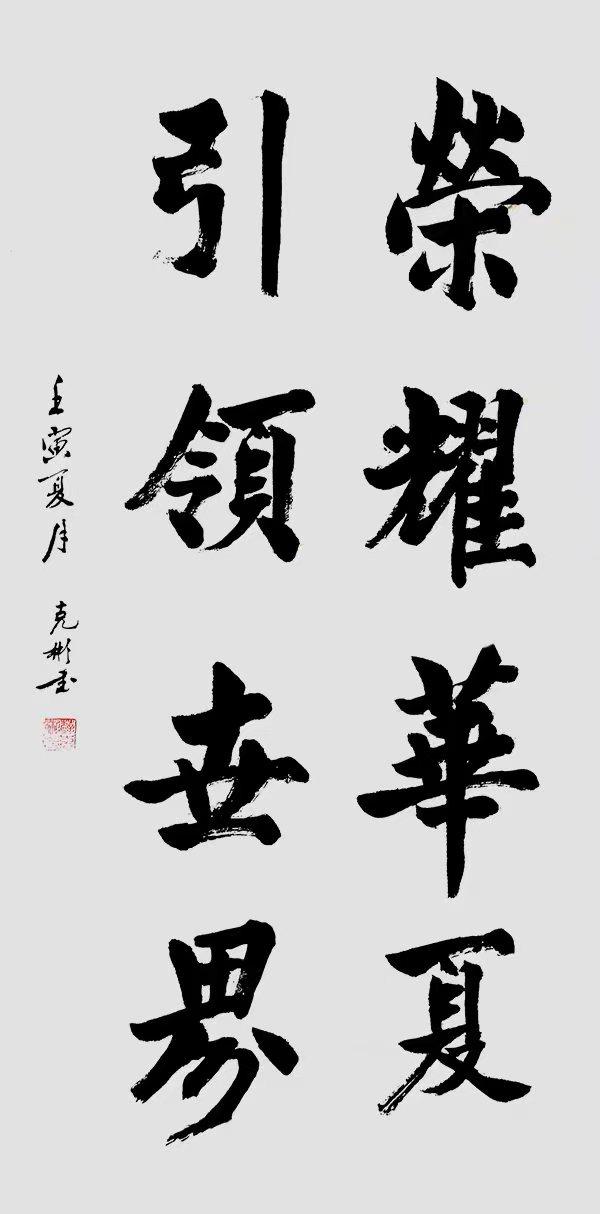 榮耀華夏
引領世界
壬寅夏月 克彬書